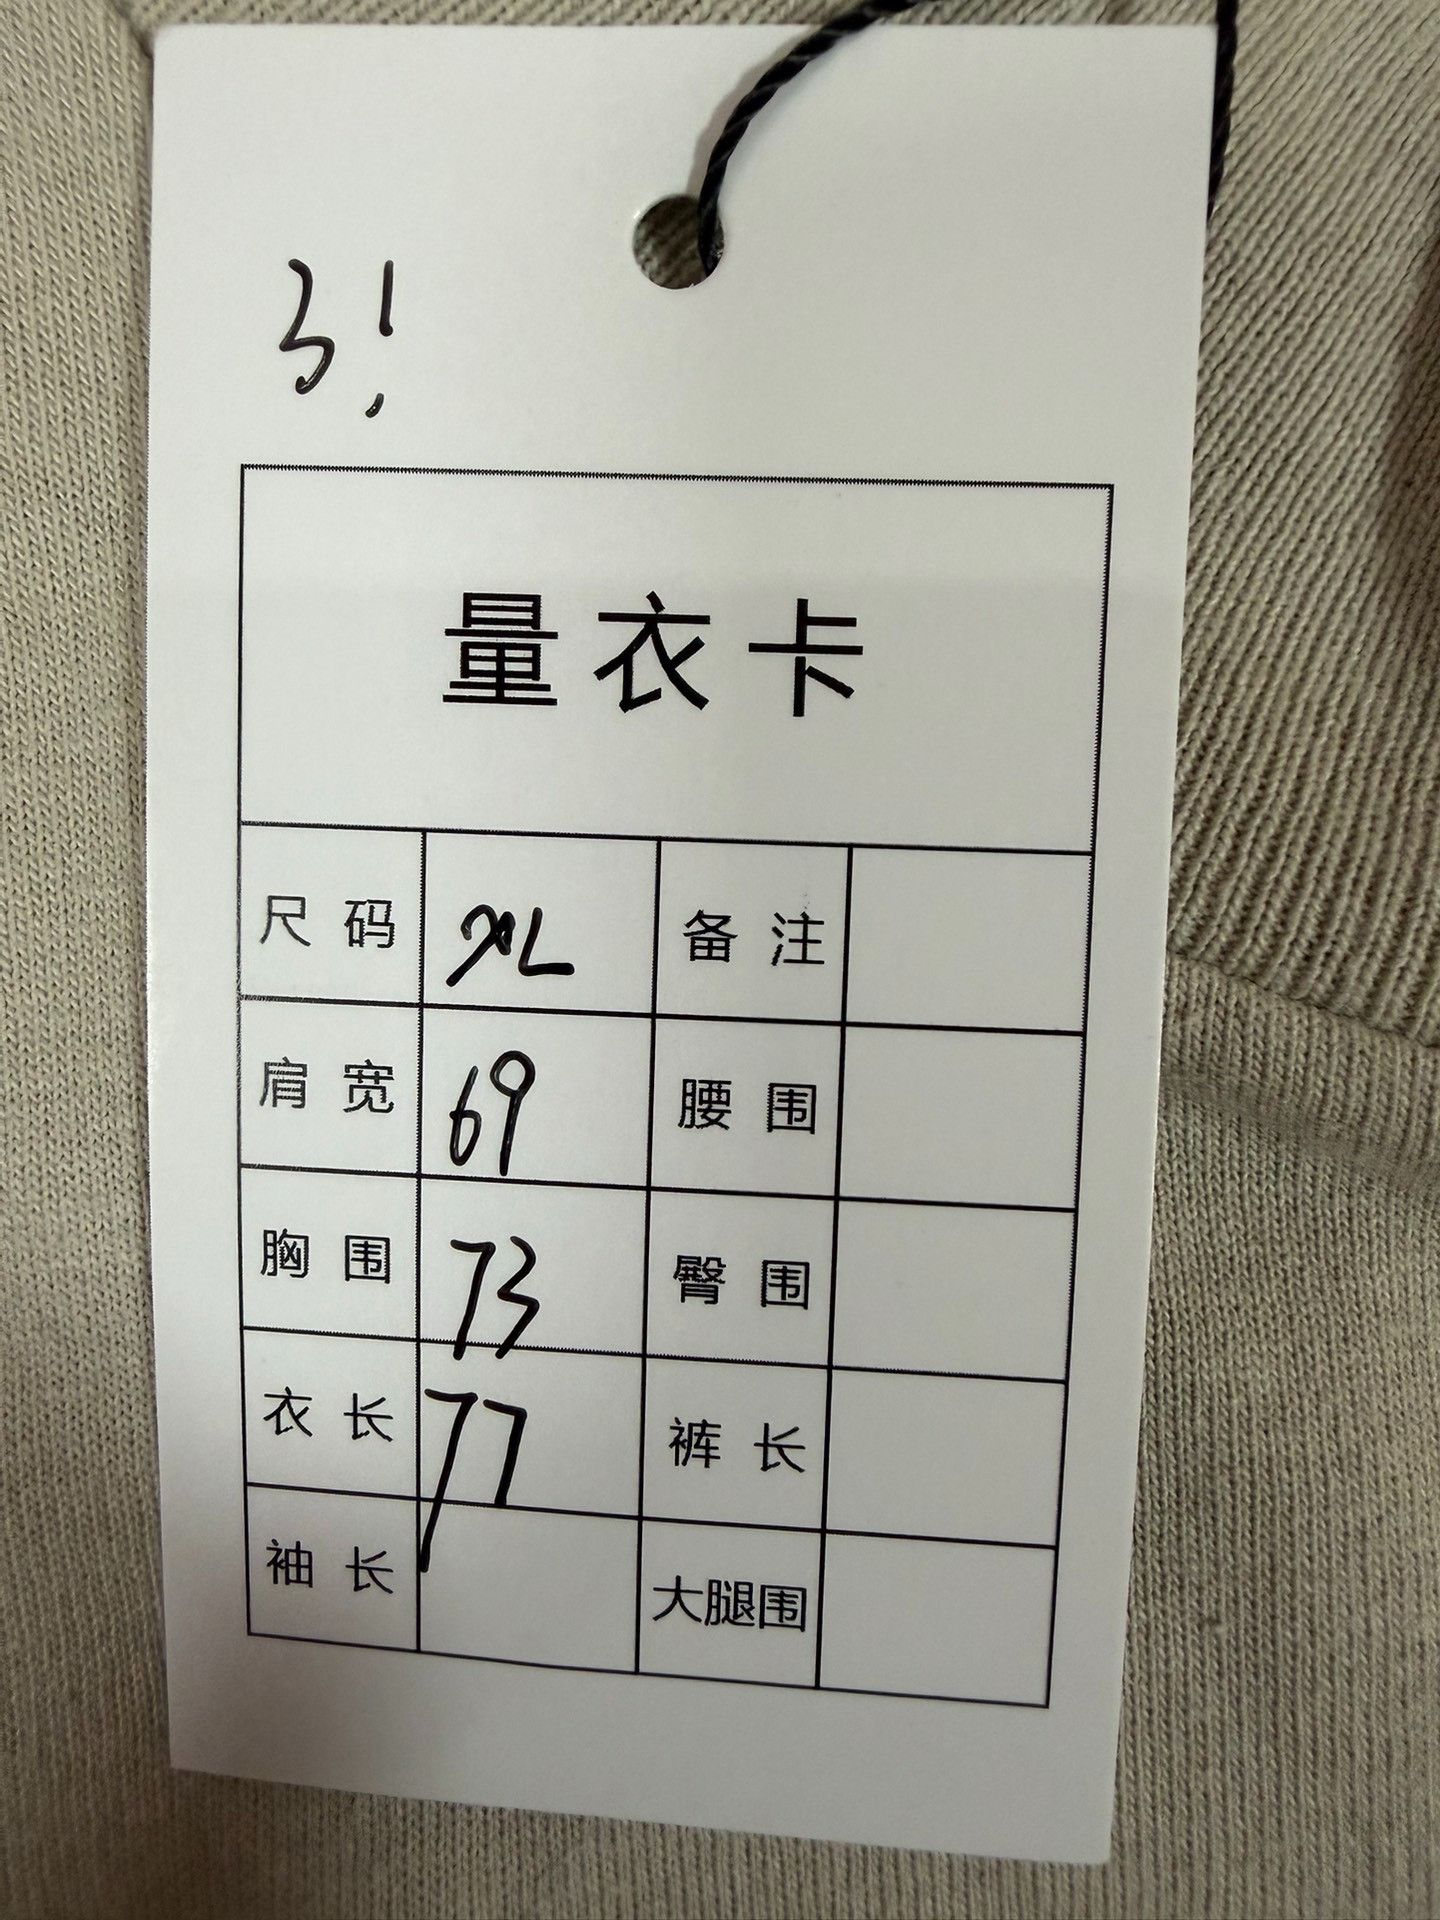 3!
量衣卡
尺码 XL 备注
肩宽 69 腰围
胸围 73 臀围
衣长 77 裤长
袖长 大腿围